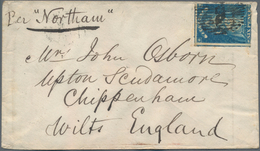 Per "Northam"
Mr. John Osborn
Upton Scudamore
Chippenham
Wilts England